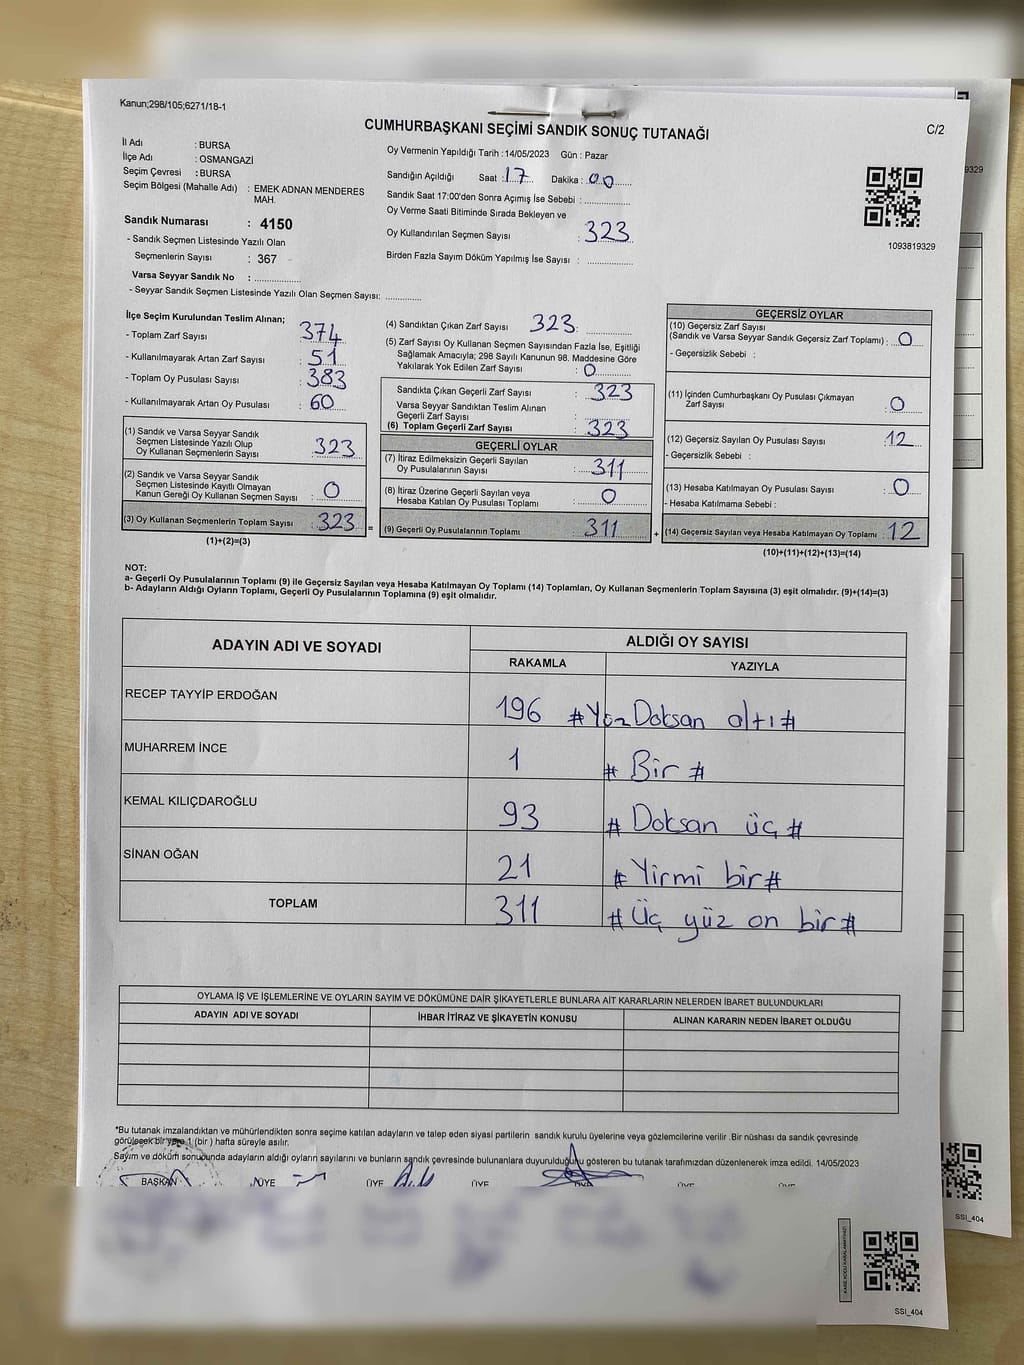 Kanun;298/105;6271/18-1
CUMHURBAŞKANI SEÇİMİ SANDIK SONUÇ TUTANAĞI
C/2
İl Adı : BURSA
İlçe Adı : OSMANGAZİ
Seçim Çevresi : BURSA
Seçim Bölgesi (Mahalle Adı) : EMEK ADNAN MENDERES
MAH.
Sandık Numarası : 4150
- Sandık Seçmen Listesinde Yazılı Olan
Seçmenlerin Sayısı : 367
Varsa Seyyar Sandık No : ................
- Seyyar Sandık Seçmen Listesinde Yazılı Olan Seçmen Sayısı: ............
Oy Vermenin Yapıldığı Tarih : 14/05/2023 Gün : Pazar
Sandığın Açıldığı Saat : 17 Dakika : 00
Sandık Saat 17:00'den Sonra Açımış İse Sebebi : ................
Oy Verme Saati Bitiminde Sırada Bekleyen ve
Oy Kullandırılan Seçmen Sayısı : 323
Birden Fazla Sayım Döküm Yapılmış İse Sayısı : ................
1093819329
9329
İlçe Seçim Kurulundan Teslim Alınan;
- Toplam Zarf Sayısı : 374
- Kullanılmayarak Artan Zarf Sayısı : 51
- Toplam Oy Pusulası Sayısı : 383
- Kullanılmayarak Artan Oy Pusulası : 60
(1) Sandık ve Varsa Seyyar Sandık
Seçmen Listesinde Yazılı Olup
Oy Kullanan Seçmenlerin Sayısı : 323
(2) Sandık ve Varsa Seyyar Sandık
Seçmen Listesinde Kayıtlı Olmayan
Kanun Gereği Oy Kullanan Seçmen Sayısı : 0
(3) Oy Kullanan Seçmenlerin Toplam Sayısı : 323 =
(1)+(2)=(3)
(4) Sandıktan Çıkan Zarf Sayısı 323 : ............
(5) Zarf Sayısı Oy Kullanan Seçmen Sayısından Fazla İse, Eşitliği
Sağlamak Amacıyla; 298 Sayılı Kanunun 98. Maddesine Göre
Yakılarak Yok Edilen Zarf Sayısı : 0
Sandıkta Çıkan Geçerli Zarf Sayısı : 323
Varsa Seyyar Sandıktan Teslim Alınan
Geçerli Zarf Sayısı :
(6) Toplam Geçerli Zarf Sayısı : 323
GEÇERLİ OYLAR
(7) İtiraz Edilmeksizin Geçerli Sayılan
Oy Pusulalarının Sayısı : 311
(8) İtiraz Üzerine Geçerli Sayılan veya
Hesaba Katılan Oy Pusulası Toplamı : 0
(9) Geçerli Oy Pusulalarının Toplamı : 311 +
GEÇERSİZ OYLAR
(10) Geçersiz Zarf Sayısı
(Sandık ve Varsa Seyyar Sandık Geçersiz Zarf Toplamı) : 0
- Geçersizlik Sebebi :
(11) İçinden Cumhurbaşkanı Oy Pusulası Çıkmayan
Zarf Sayısı : 0
(12) Geçersiz Sayılan Oy Pusulası Sayısı : 12
- Geçersizlik Sebebi :
(13) Hesaba Katılmayan Oy Pusulası Sayısı : 0
- Hesaba Katılmama Sebebi :
(14) Geçersiz Sayılan veya Hesaba Katılmayan Oy Toplamı : 12
(10)+(11)+(12)+(13)=(14)
NOT:
a- Geçerli Oy Pusulalarının Toplamı (9) ile Geçersiz Sayılan veya Hesaba Katılmayan Oy Toplamı (14) Toplamları, Oy Kullanan Seçmenlerin Toplam Sayısına (3) eşit olmalıdır. (9)+(14)=(3)
b- Adayların Aldığı Oyların Toplamı, Geçerli Oy Pusulalarının Toplamına (9) eşit olmalıdır.
ADAYIN ADI VE SOYADI ALDIĞI OY SAYISI
RAKAMLA YAZIYLA
RECEP TAYYİP ERDOĞAN 196 #Yüz Doksan altı#
MUHARREM İNCE 1 # Bir #
KEMAL KILIÇDAROĞLU 93 # Doksan üç #
SİNAN OĞAN 21 # Yirmi bir #
TOPLAM 311 # Üç yüz on bir #
OYLAMA İŞ VE İŞLEMLERİNE VE OYLARIN SAYIM VE DÖKÜMÜNE DAİR ŞİKAYETLERLE BUNLARA AİT KARARLARIN NELERDEN İBARET BULUNDUKLARI
ADAYIN ADI VE SOYADI İHBAR İTİRAZ VE ŞİKAYETİN KONUSU ALINAN KARARIN NEDEN İBARET OLDUĞU
*Bu tutanak imzalandıktan ve mühürlendikten sonra seçime katılan adayların ve talep eden siyasi partilerin sandık kurulu üyelerine veya gözlemcilerine verilir .Bir nüshası da sandık çevresinde
görülecek bir yere 1 (bir ) hafta süreyle asılır.
Sayım ve döküm sonucunda adayların aldığı oyların sayılarını ve bunların sandık çevresinde bulunanlara duyurulduğunu gösteren bu tutanak tarafımızdan düzenlenerek imza edildi. 14/05/2023
BAŞKAN ÜYE ÜYE ÜYE ÜYE ÜYE ÜYE
SSİ_404
SSİ_404